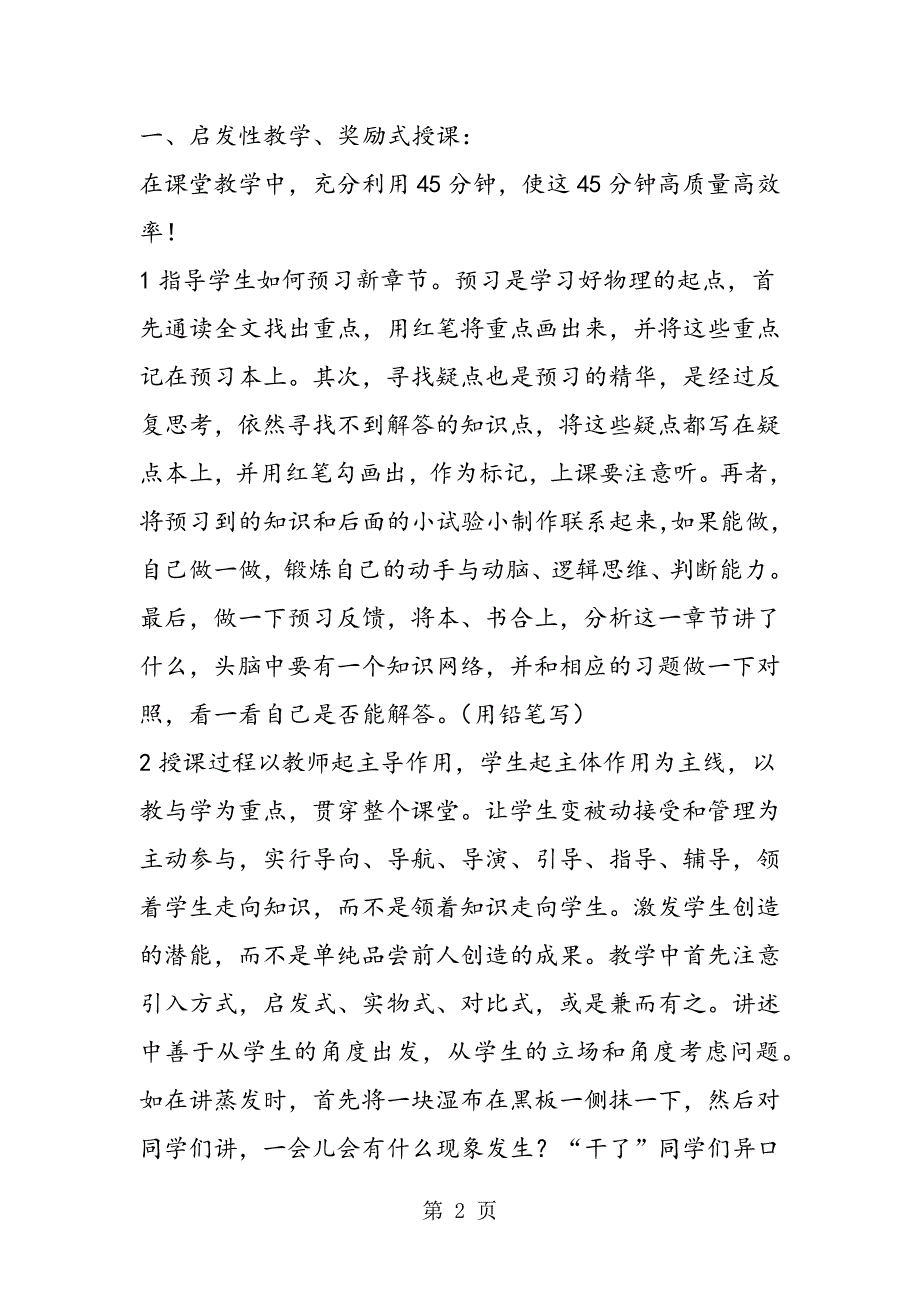 一、启发性教学、奖励式授课：
在课堂教学中，充分利用 45 分钟，使这 45 分钟高质量高效
率！
1 指导学生如何预习新章节。预习是学习好物理的起点，首
先通读全文找出重点，用红笔将重点画出来，并将这些重点
记在预习本上。其次，寻找疑点也是预习的精华，是经过反
复思考，依然寻找不到解答的知识点，将这些疑点都写在疑
点本上，并用红笔勾画出，作为标记，上课要注意听。再者，
将预习到的知识和后面的小试验小制作联系起来，如果能做，
自己做一做，锻炼自己的动手与动脑、逻辑思维、判断能力。
最后，做一下预习反馈，将本、书合上，分析这一章节讲了
什么，头脑中要有一个知识网络，并和相应的习题做一下对
照，看一看自己是否能解答。（用铅笔写）
2 授课过程以教师起主导作用，学生起主体作用为主线，以
教与学为重点，贯穿整个课堂。让学生变被动接受和管理为
主动参与，实行导向、导航、导演、引导、指导、辅导，领
着学生走向知识，而不是领着知识走向学生。激发学生创造
的潜能，而不是单纯品尝前人创造的成果。教学中首先注意
引入方式，启发式、实物式、对比式，或是兼而有之。讲述
中善于从学生的角度出发，从学生的立场和角度考虑问题。
如在讲蒸发时，首先将一块湿布在黑板一侧抹一下，然后对
同学们讲，一会儿会有什么现象发生？“干了”同学们异口
第 2 页